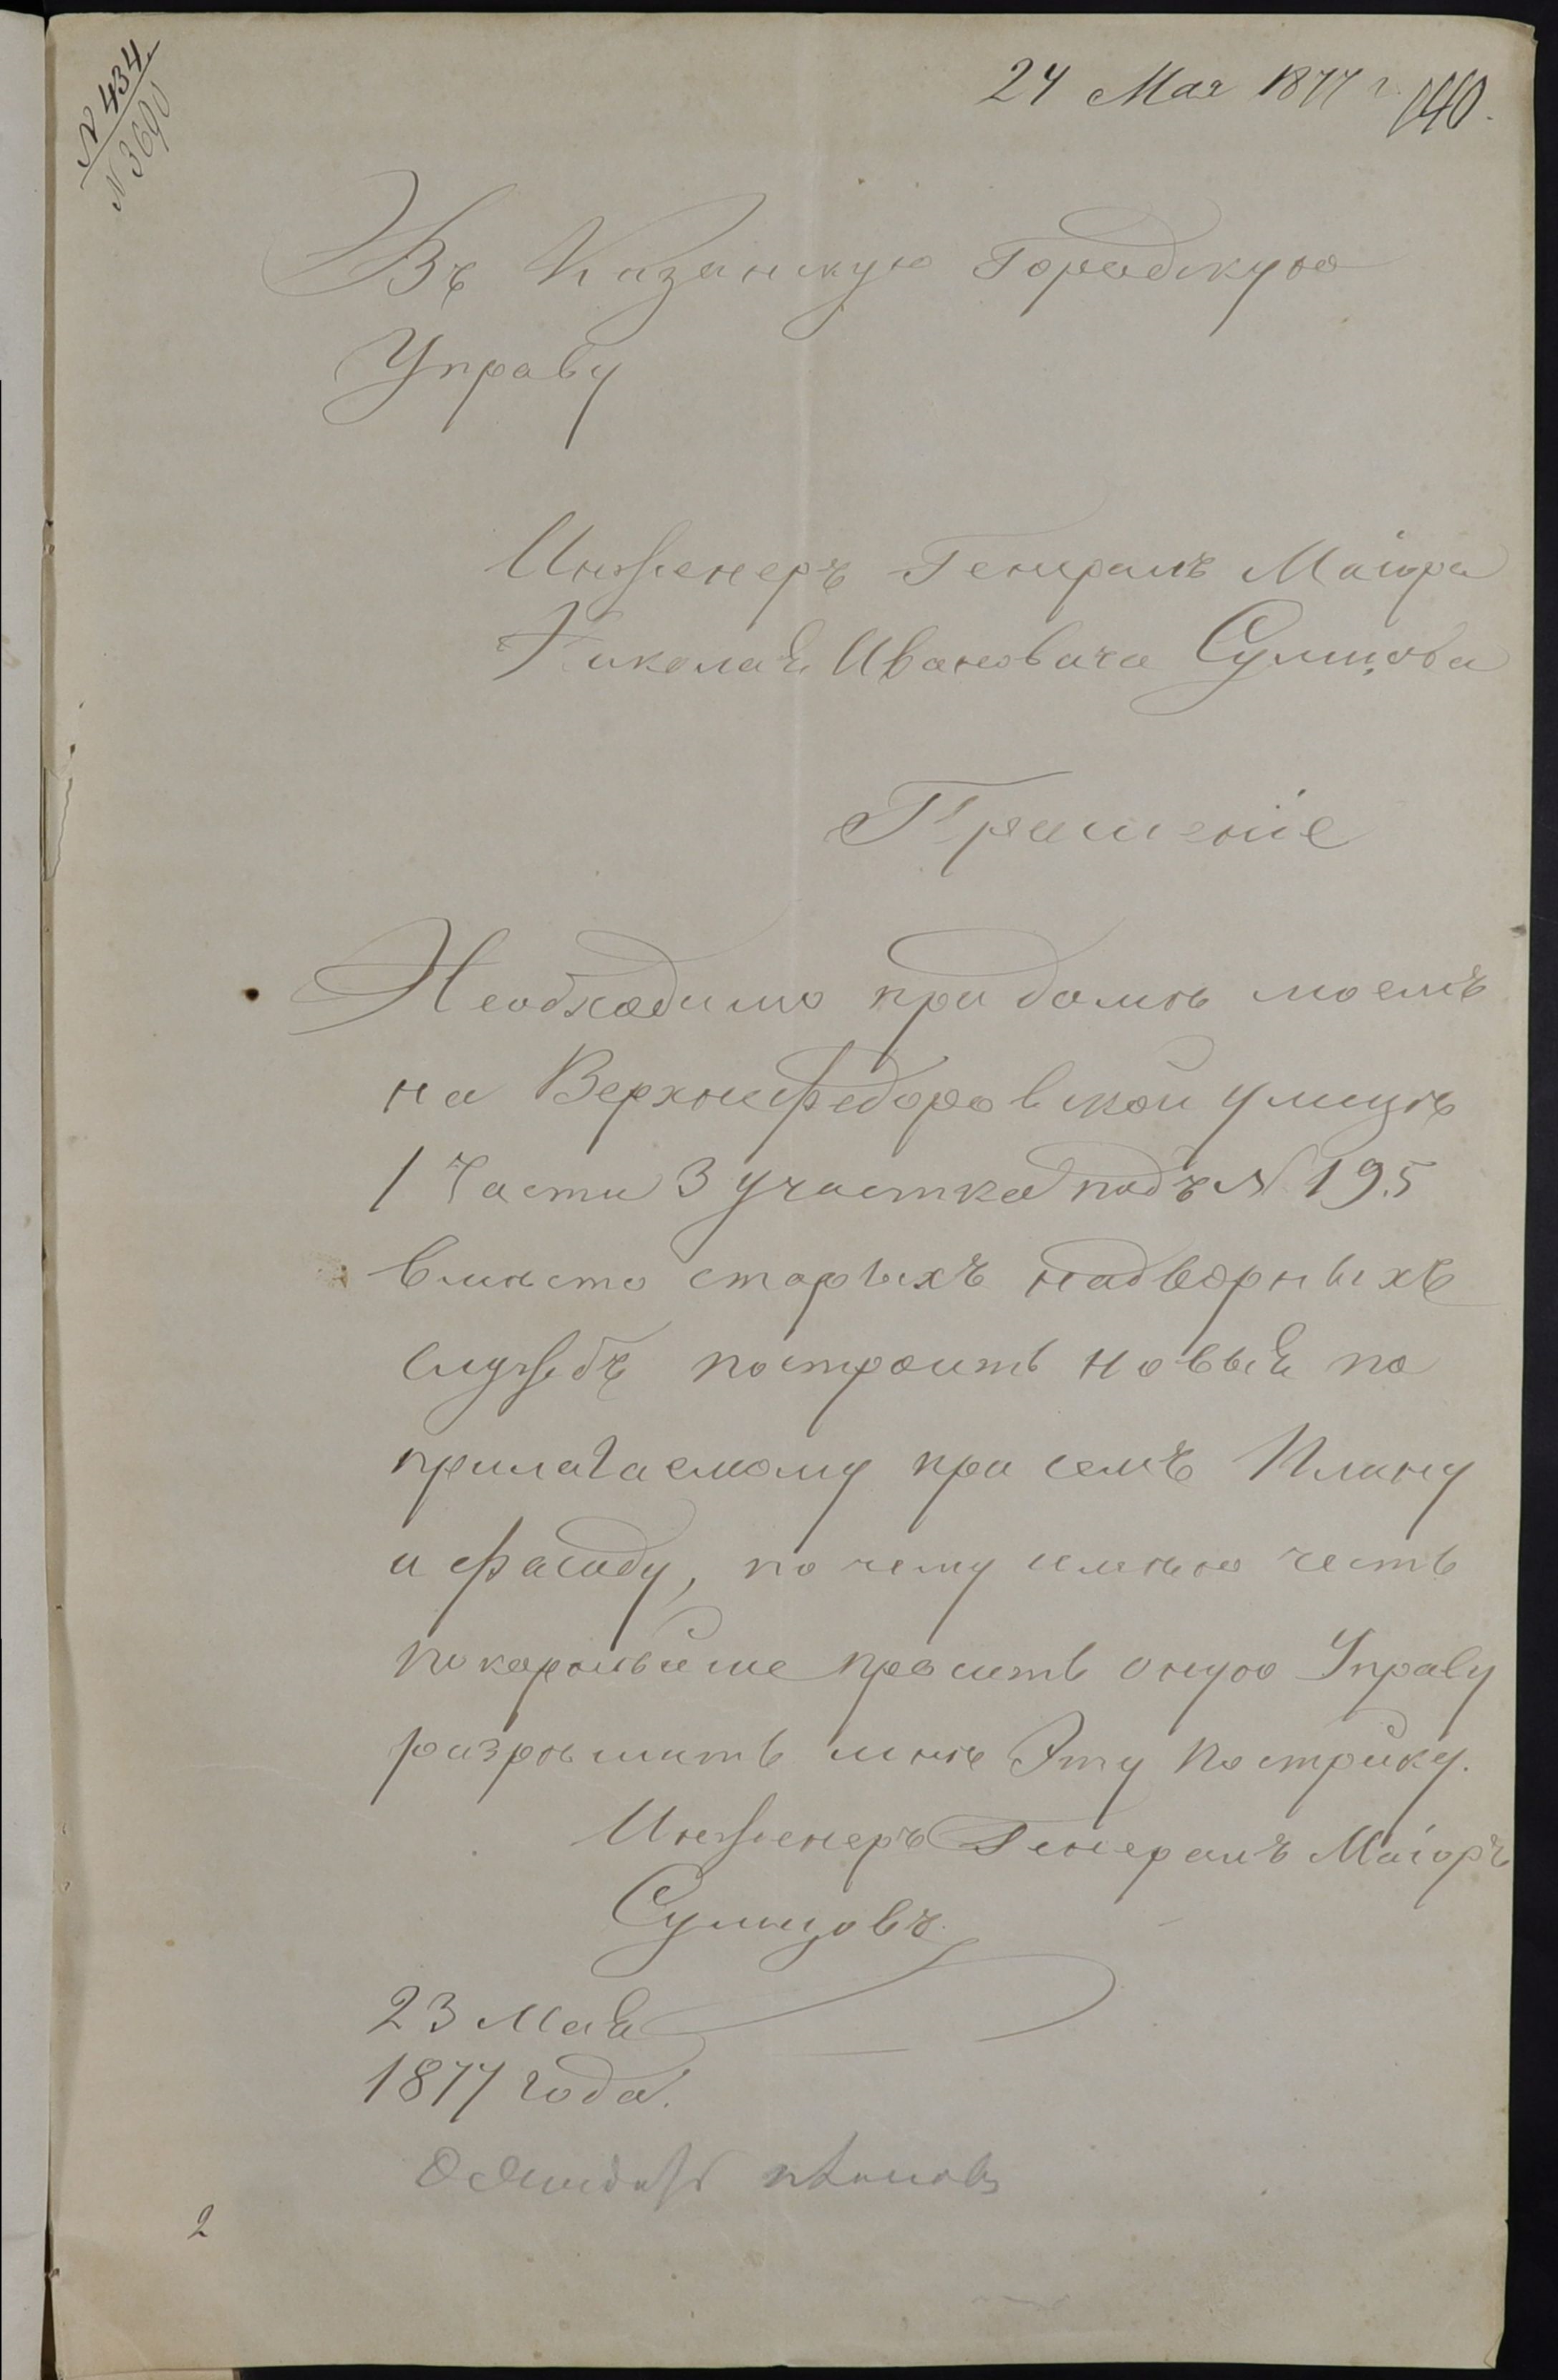 N 434
N 3690
24 Мая 1877 г. 140.
Въ Казанскую Городскую
Управу
Инженеръ Генералъ Маіора
Николая Ивановича Сумцова
Прошеніе
Необходимо при домѣ моемъ
на Верхнефедоровской улицѣ
1 Части 3 участка подъ N 195
вмѣсто старыхъ надворныхъ
службъ построить новыя по
прилагаемому при семъ Плану
и фасаду, по чему имѣю честь
покорнѣйше просить оную Управу
разрѣшить мнѣ Эту постройку.
Инженеръ Генералъ Маіоръ
Сумцовъ.
23 Мая
1877 года.
2